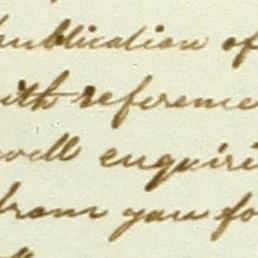 publication of
with reference
well enquiri
from you fo